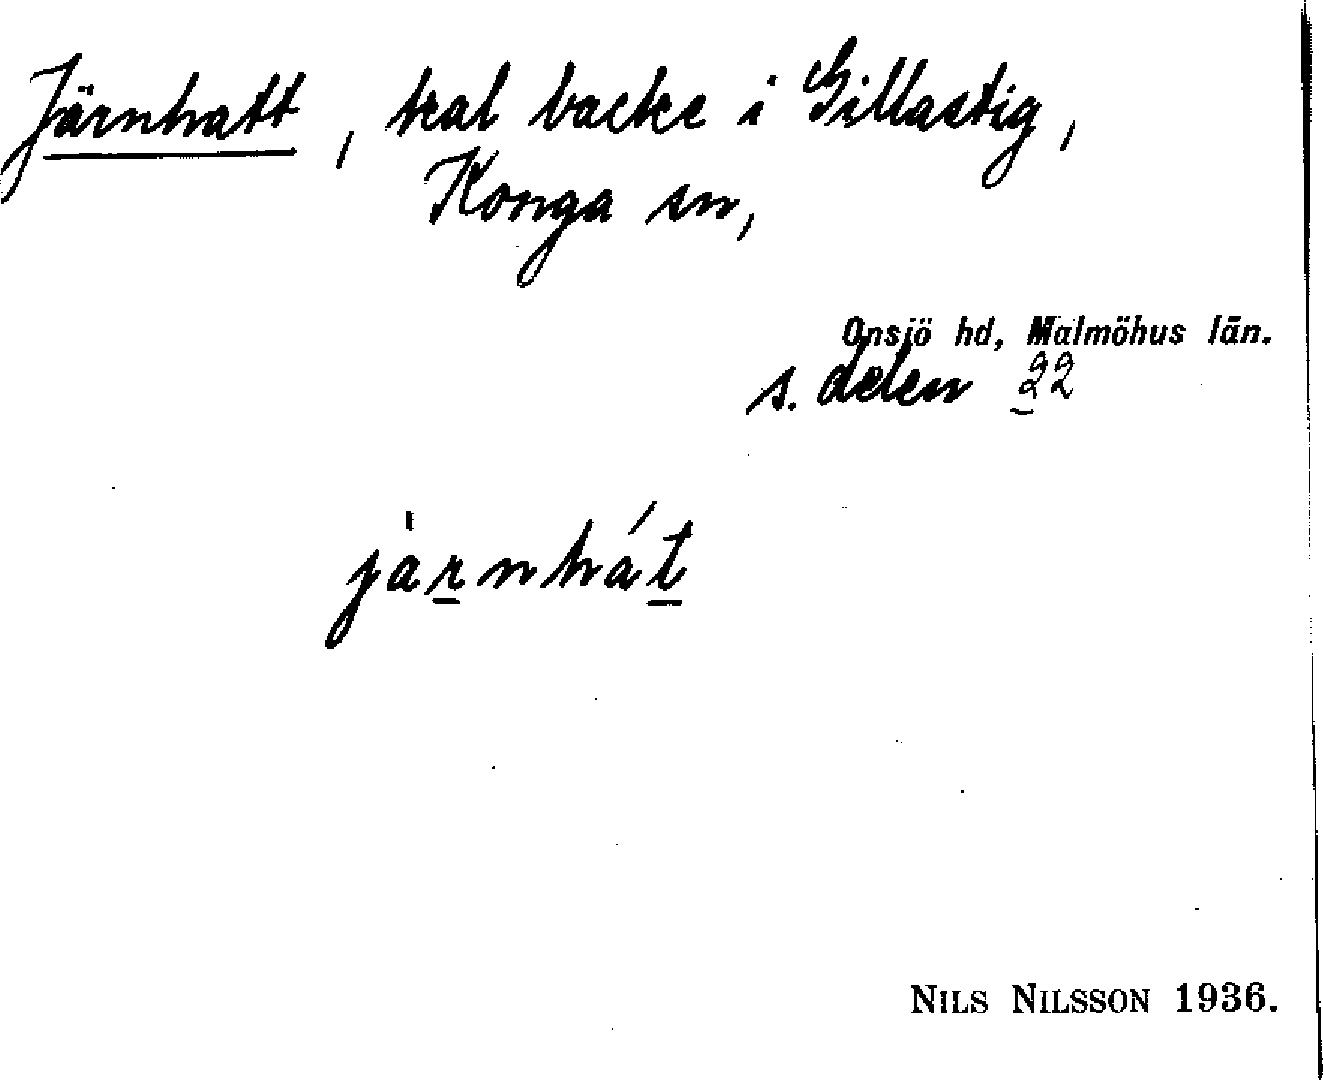 Järnhatt, kal backe i Gillastig,
Konga sn,
Onsjö hd, Malmöhus län.
s. delen 22
jàrnhát
NILS NILSSON 1936.